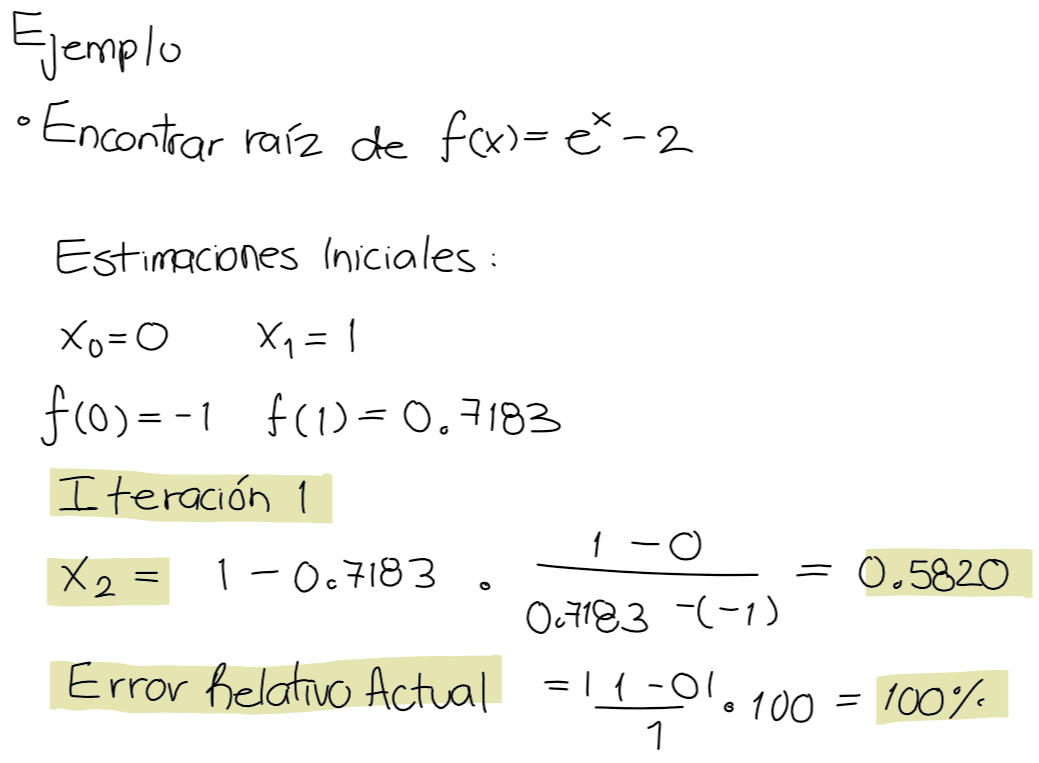 Ejemplo
° Encontrar raíz de f(x) = eˣ - 2
Estimaciones Iniciales:
x₀ = 0 x₁ = 1
f(0) = -1 f(1) = 0.7183
Iteración 1
x₂ = 1 - 0.7183 . (1 - 0)/(0.7183 -(-1)) = 0.5820
Error Relativo Actual = |1 - 0|/1 . 100 = 100%